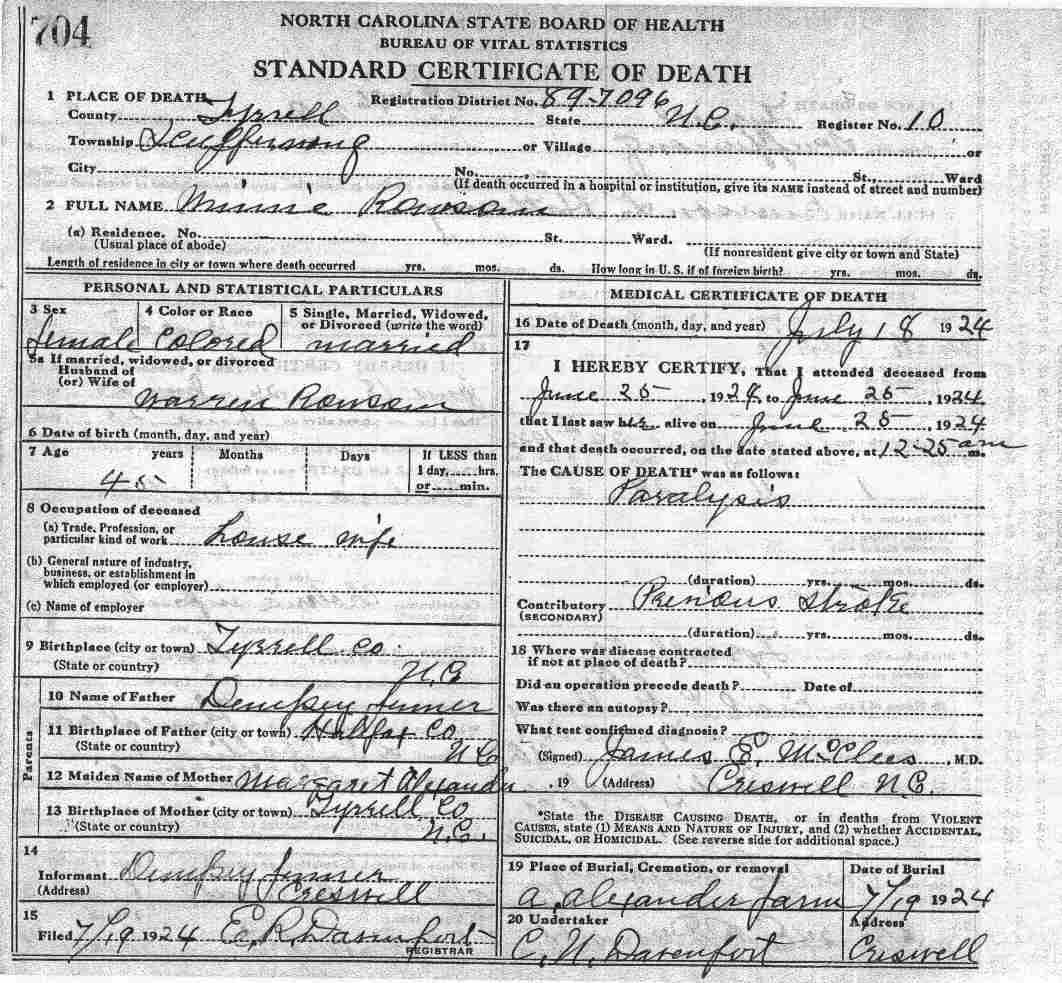 704
NORTH CAROLINA STATE BOARD OF HEALTH
BUREAU OF VITAL STATISTICS
STANDARD CERTIFICATE OF DEATH
1 PLACE OF DEATH Registration District No. 89-7096
County Tyrrell State N.C. Register No. 10
Township Scuppernong or Village or
City No. St., Ward
(If death occurred in a hospital or institution, give its NAME instead of street and number)
2 FULL NAME Minnie Rowsom
(a) Residence. No. St. Ward.
(Usual place of abode) (If nonresident give city or town and State)
Length of residence in city or town where death occurred yrs. mos. ds. How long in U. S. if of foreign birth? yrs. mos. ds.
PERSONAL AND STATISTICAL PARTICULARS
3 Sex 4 Color or Race 5 Single, Married, Widowed, or Divorced (write the word)
female Colored married
5a If married, widowed, or divorced
Husband of
(or) Wife of
Warren Rowsom
6 Date of birth (month, day, and year)
7 Age years Months Days If LESS than
1 day, hrs.
or min.
45
8 Occupation of deceased
(a) Trade, Profession, or
particular kind of work house wife
(b) General nature of industry,
business, or establishment in
which employed (or employer)
(c) Name of employer
9 Birthplace (city or town) Tyrrell Co.
(State or country) N.C
Parents
10 Name of Father Dempsey
11 Birthplace of Father (city or town) Halifax Co
(State or country) N C
12 Maiden Name of Mother Margaret Alexander
13 Birthplace of Mother (city or town) Tyrrell Co
(State or country) N.C.
14
Informant Dempsey
(Address) Creswell
15
Filed 7/19 1924 E. R. Davenport
REGISTRAR
MEDICAL CERTIFICATE OF DEATH
16 Date of Death (month, day, and year) July 18 1924
17
I HEREBY CERTIFY, That I attended deceased from
June 25, 1924, to June 25, 1924
that I last saw her alive on June 25 1924
and that death occurred, on the date stated above, at 12-25 am m.
The CAUSE OF DEATH* was as follows:
Paralysis
(duration) yrs. mos. ds.
Contributory Previous Stroke
(SECONDARY)
(duration) yrs. mos. ds.
18 Where was disease contracted
if not at place of death?
Did an operation precede death? Date of
Was there an autopsy?
What test confirmed diagnosis?
(Signed) James E. McClees, M.D.
, 19 (Address) Creswell N.C.
*State the DISEASE CAUSING DEATH, or in deaths from VIOLENT
CAUSES, state (1) MEANS AND NATURE OF INJURY, and (2) whether ACCIDENTAL,
SUICIDAL, OR HOMICIDAL. (See reverse side for additional space.)
19 Place of Burial, Cremation, or removal Date of Burial
A. Alexander farm 7/19 1924
20 Undertaker Address
C. N. Davenport Creswell